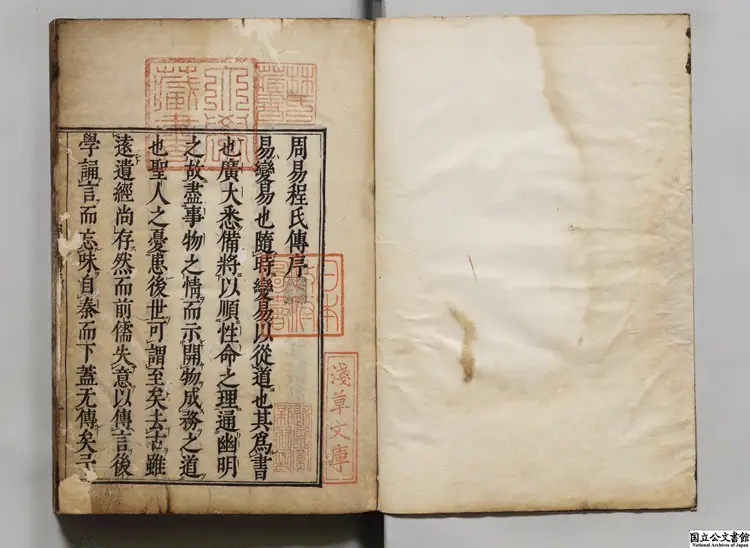 林氏藏書
大學藏書
周易程氏傳序
易變易也隨時變易以從道也其爲書
也廣大悉備將以順性命之理通幽明
之故盡事物之情而示開物成務之道
也聖人之憂患後世可謂至矣去古雖
遠遺經尚存然而前儒失意以傳言後
學誦言而忘味自秦而下蓋无傳矣
日本政府圖書
淺草文庫
国立公文書館
National Archives of Japan